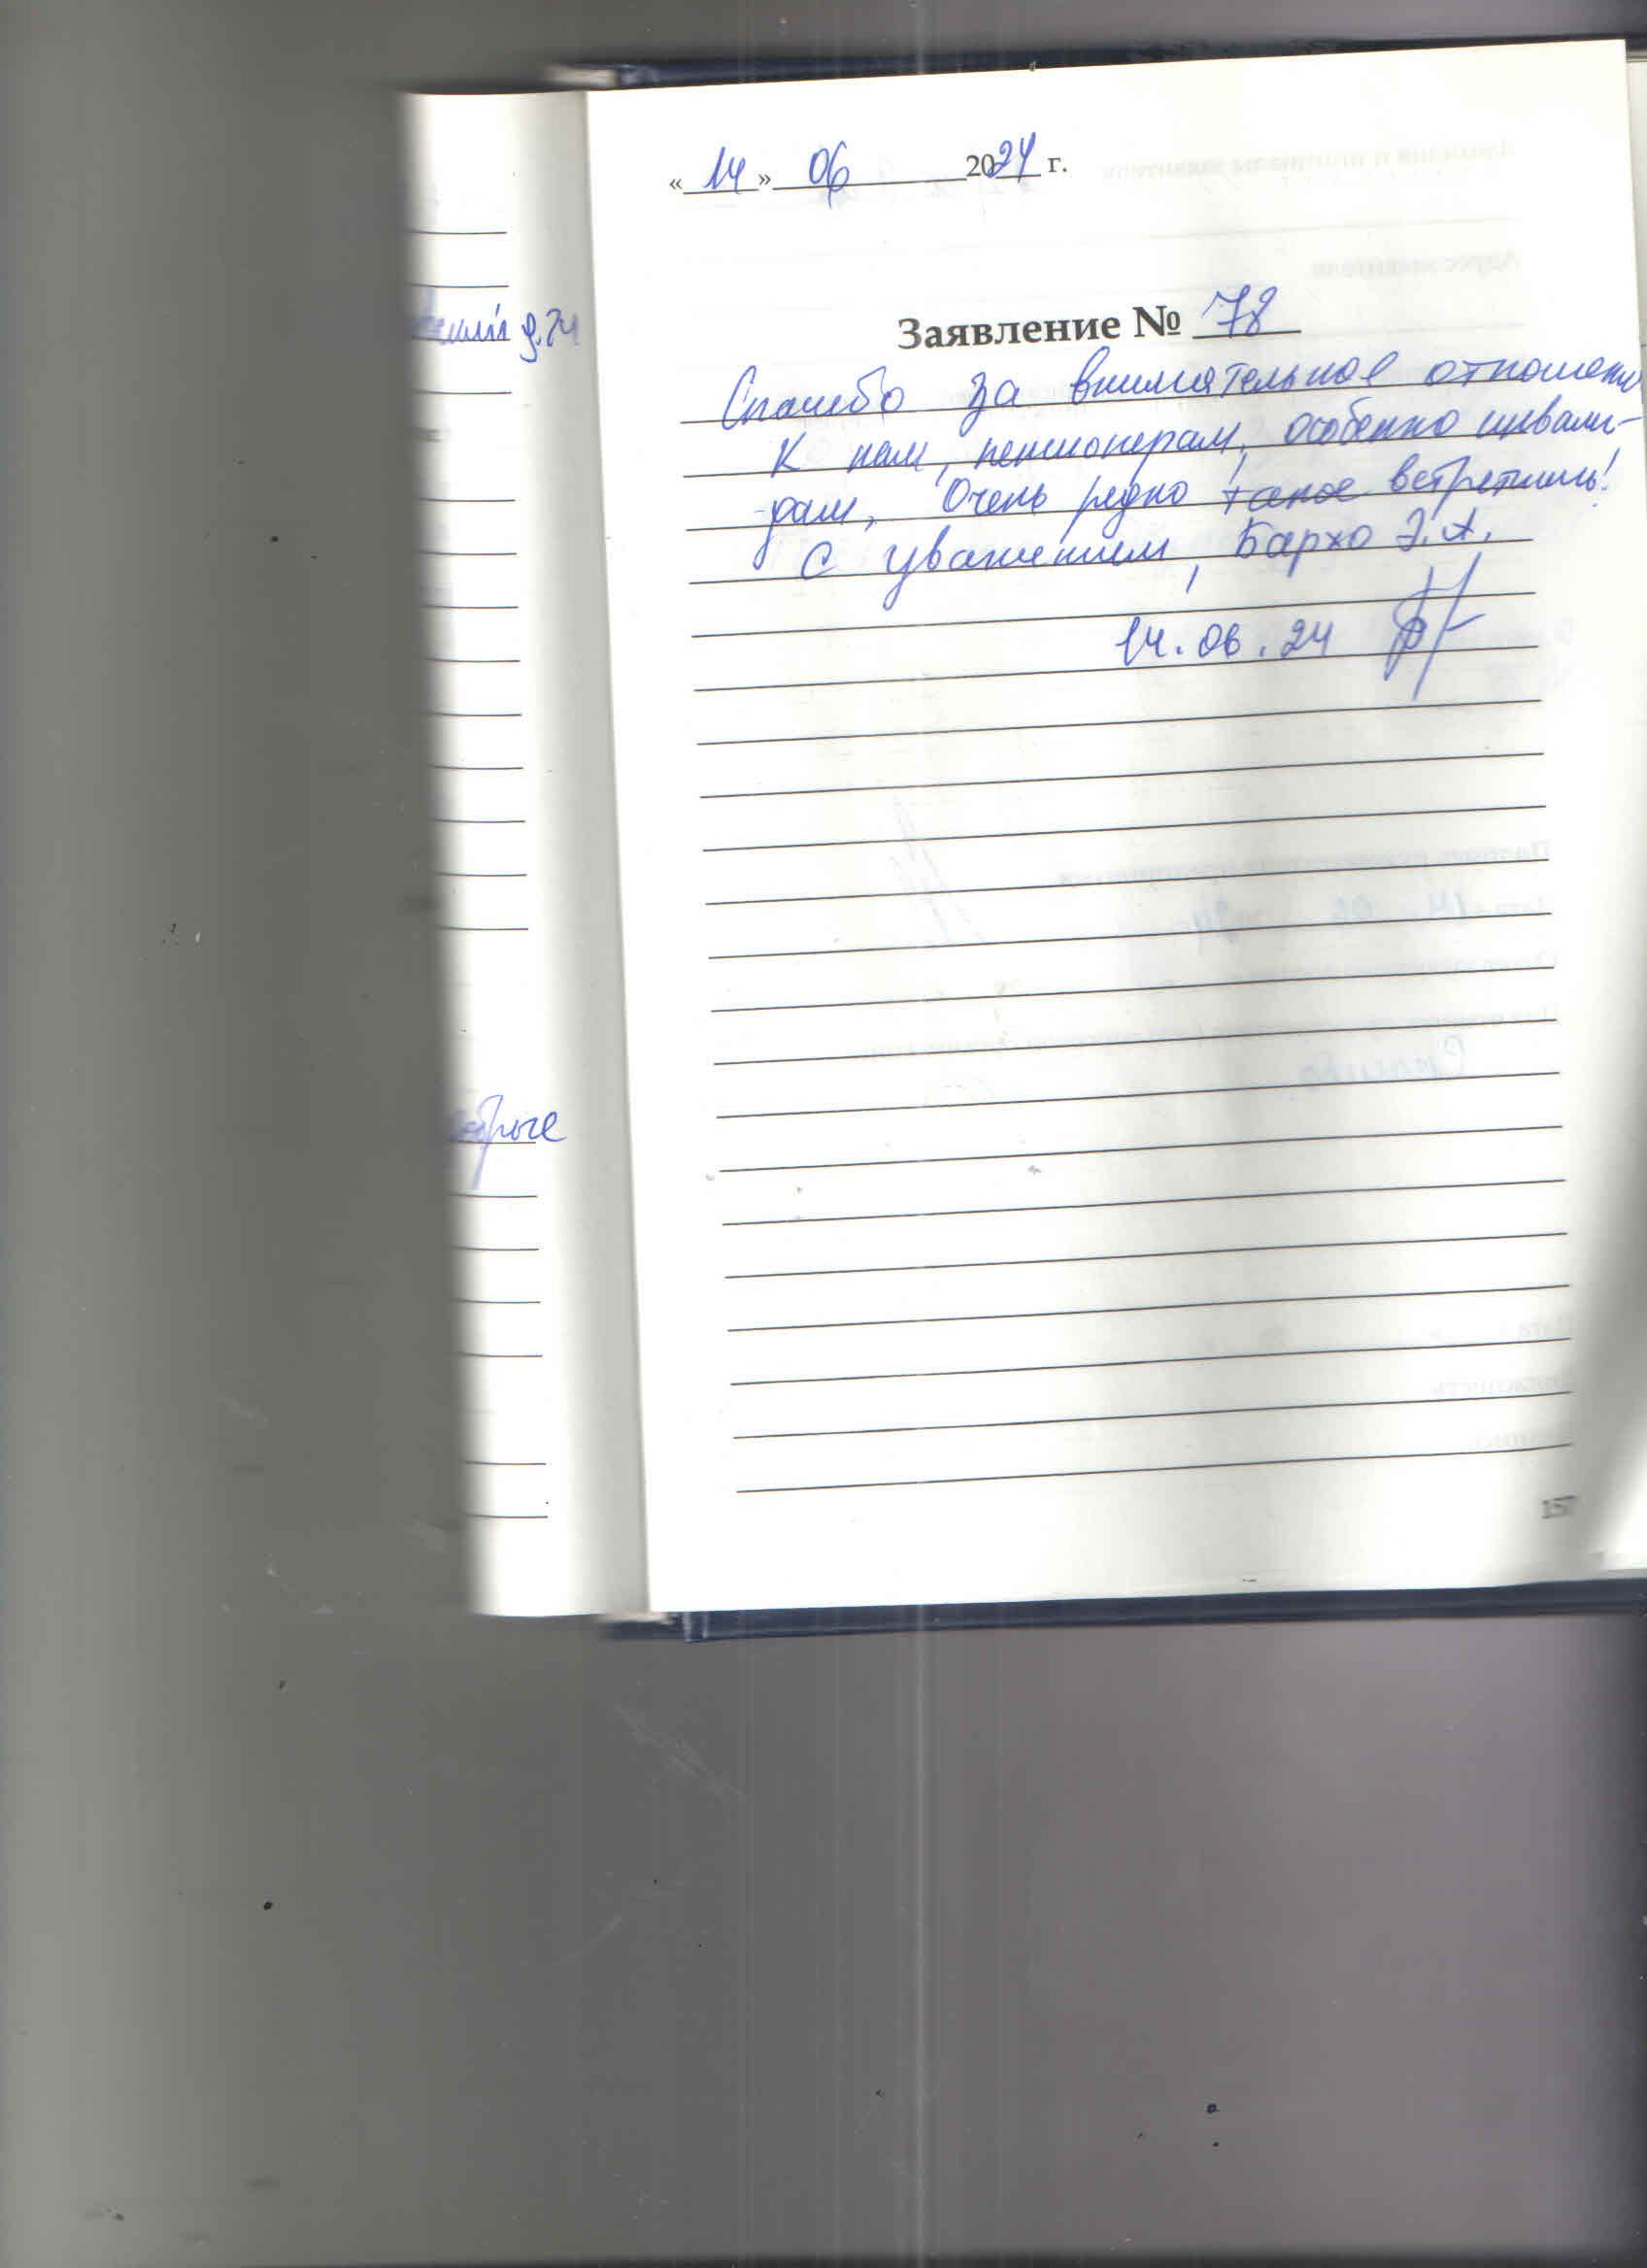 «14» 06 2024 г.
Заявление № 78
Спасибо за внимательное отношени
к нам, пенсионерам, особенно инвали-
дам, Очень редко такое встретишь!
С уважением, Бархо Э.А.
14.06.24
д.24
добрые
157